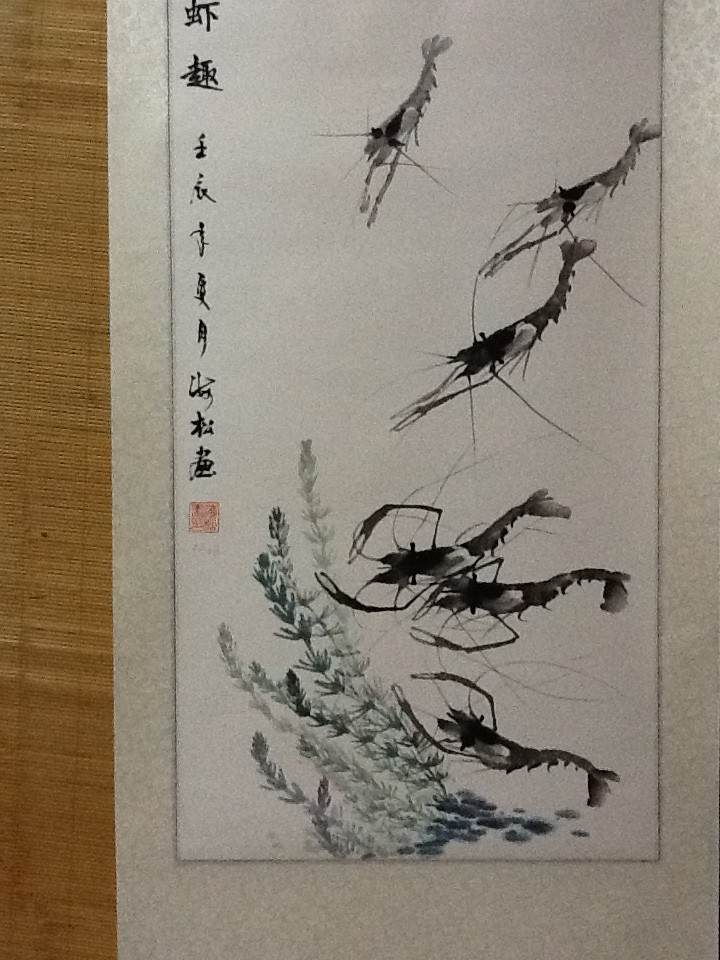 虾趣 壬辰年夏月海松画